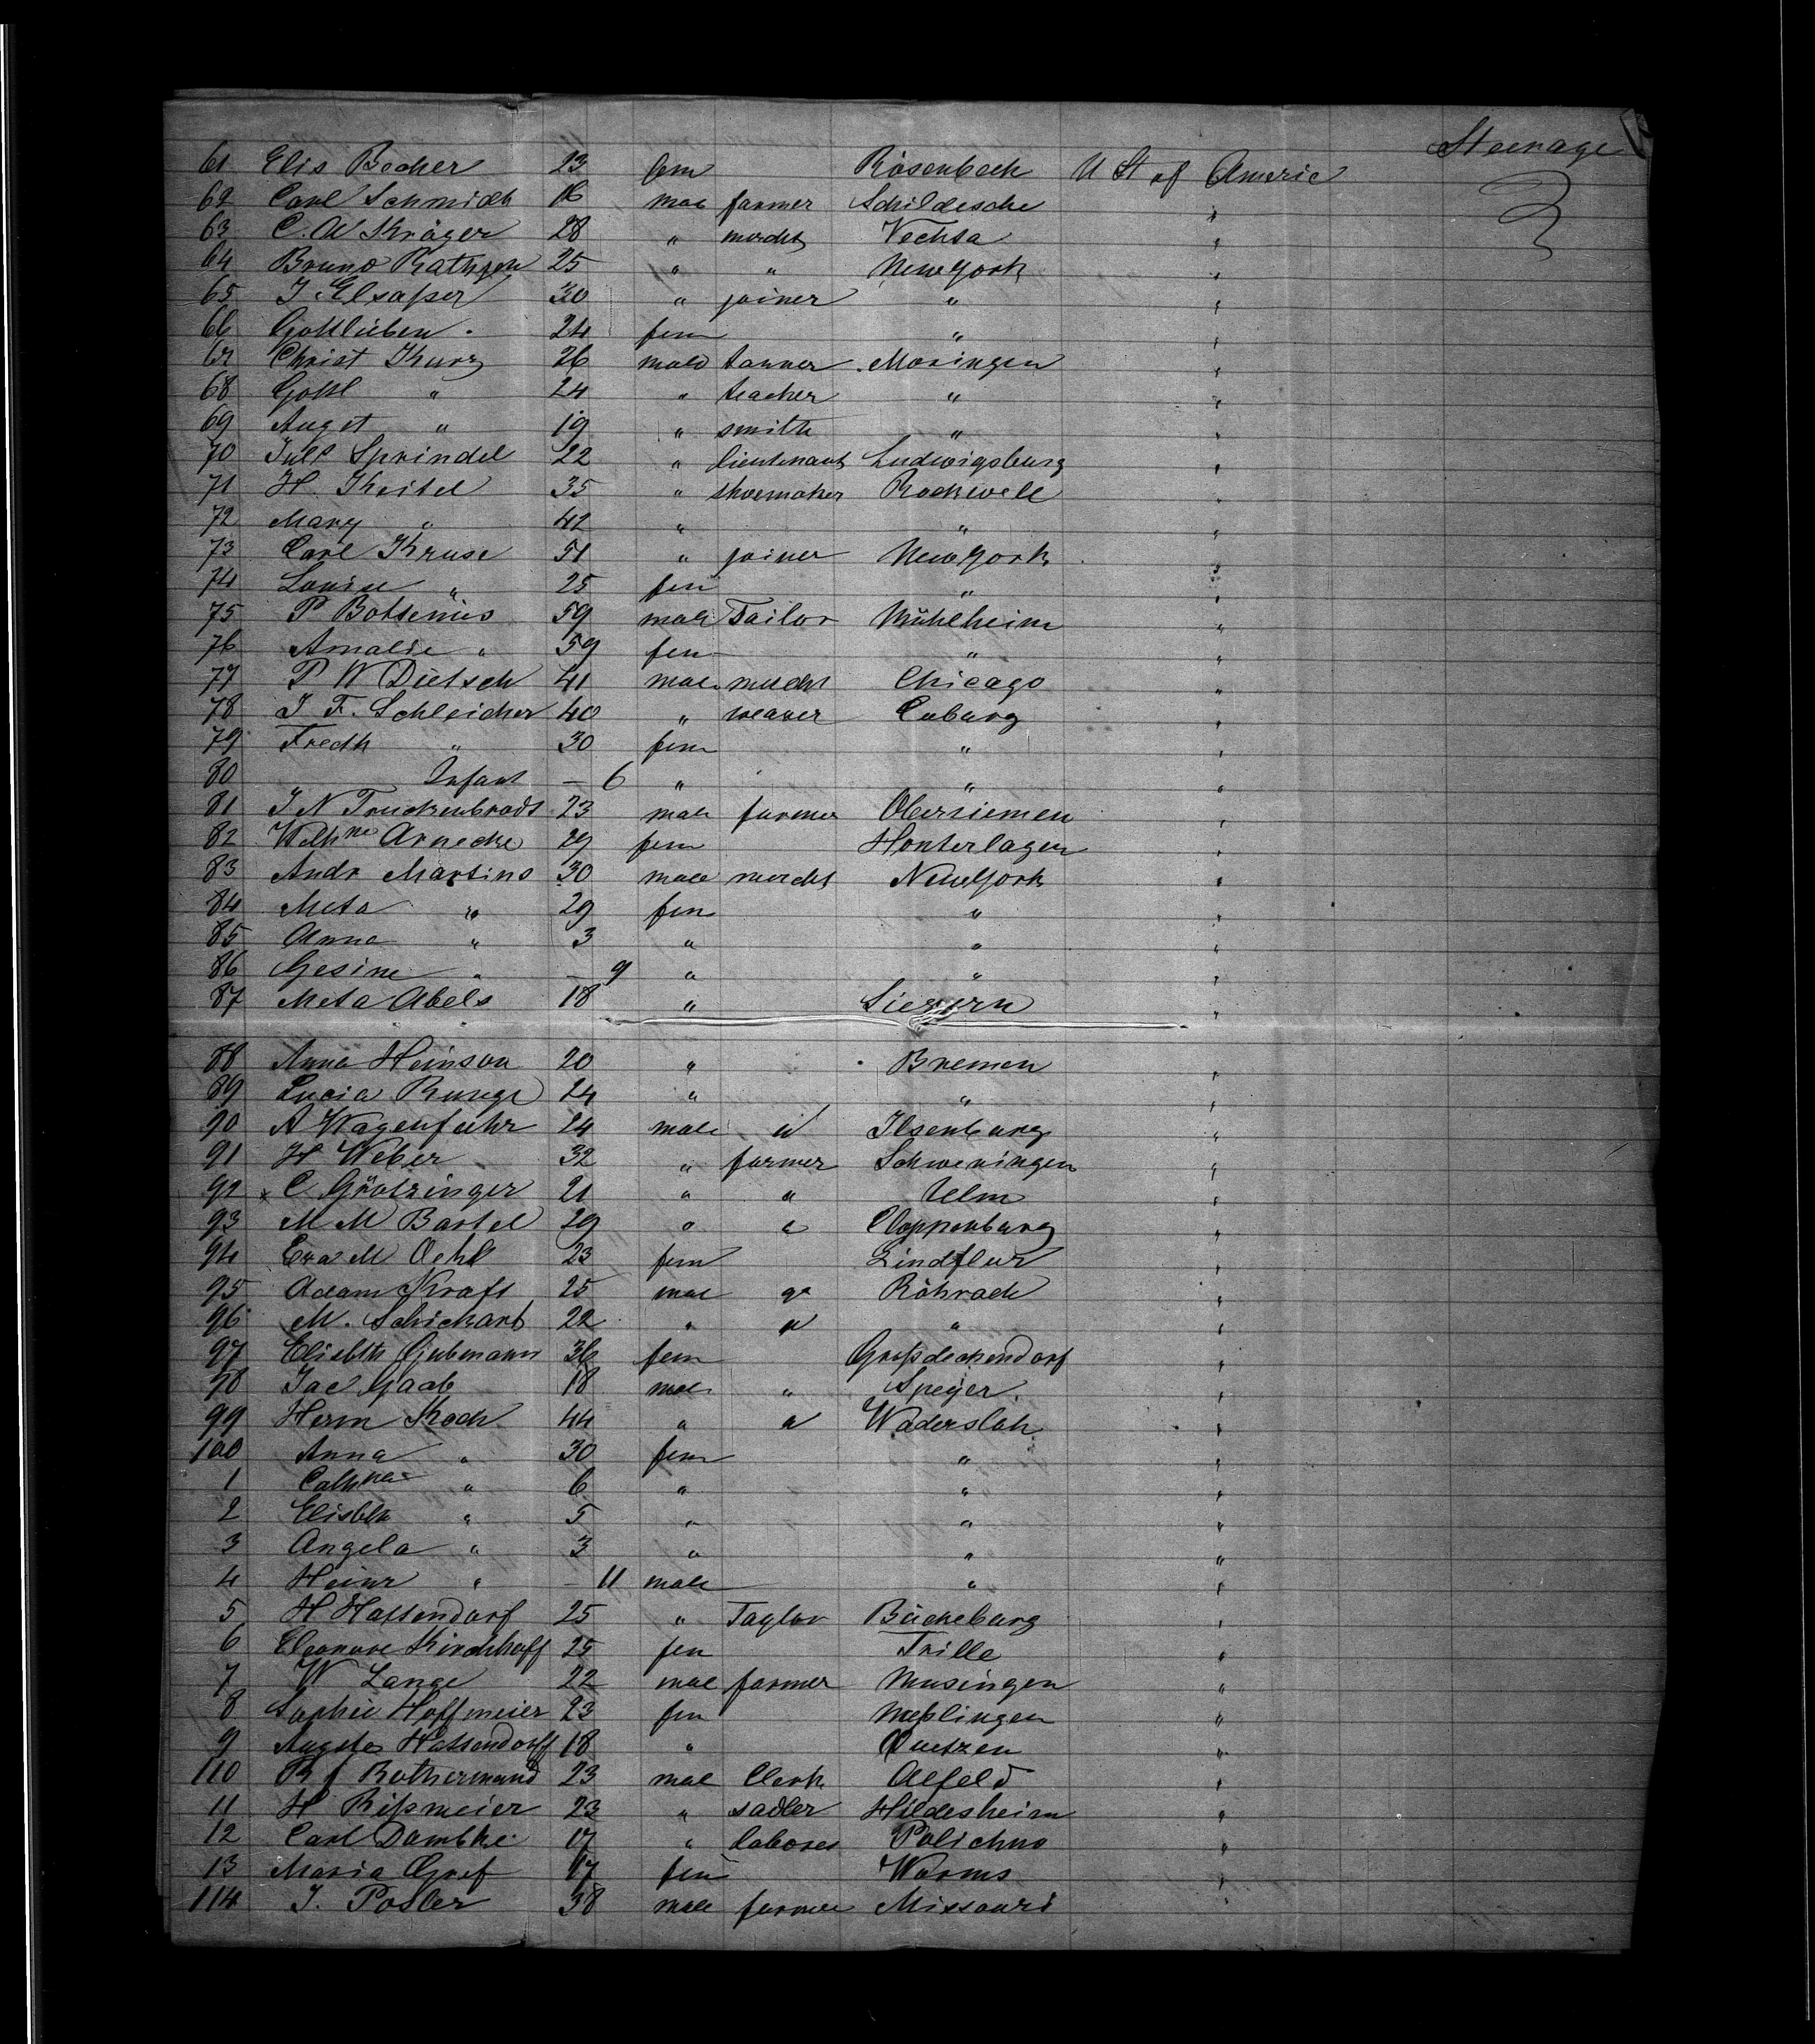 Steerage
61 Elis Becker 23 fem Rosenbeck U St of Americ
62 Carl Schmidt 16 mal farmer Schildesche "
63 C. A Kröger 28 " mercht Vechta "
64 Bruno Rathjen 25 " " New York "
65 J. Elsaßer 30 " joiner " "
66 Gottlieben " 24 fem " "
67 Christ Kurz 26 male tanner Moringen "
68 Gottl " 24 " teacher " "
69 Augst " 19 " smith " "
70 Jull Sprindel 22 " lieutenant Ludwigsburg "
71 H. Keitel 35 " shoemaker Rockwell "
72 Mary " 42 " " "
73 Carl Kruse 51 " joiner New York "
74 Louise " 25 fem " "
75 P Bottenus 59 male Tailor Mühlheim "
76 Amalie " 59 fem " "
77 P W Dietsch 41 male mercht Chicago "
78 J F. Schleicher 40 " weaver Coburg "
79 Fredk " 30 fem " "
80 Infant — 6 " " "
81 J N Truckenbrodt 23 male farmer Obersiemen "
82 Wilhne Arnecke 29 fem Honterlagen "
83 Andr Martins 30 male mercht New York "
84 Meta " 29 fem " "
85 Anna " 3 " " "
86 Gesine " — 9 " " "
87 Meta Abels 18 " Sievern "
88 Anna Heinson 20 " Bremen "
89 Lucia Runge 24 " " "
90 A Wagenfuhr 24 male " Ilsenburg "
91 H Weber 32 " farmer Schweningen "
92 x C Grötzinger 21 " " Ulm "
93 M M Bartel 29 " " Cloppenburg "
94 Eva M Oehl 23 fem Lindflur "
95 Adam Kraft 25 mal " Röhrach "
96 M. Schickart 22 " " " "
97 Elisbth Gubmann 36 fem Großdechendorf "
98 Jac Gaab 18 male " Speyer "
99 Herm Koch 44 " " Waderslok "
100 Anna " 30 fem " "
1 Cathne " 6 " " "
2 Elisbth " 5 " " "
3 Angela " 3 " " "
4 Heinr " — 11 male " "
5 H Hattendorf 25 " Taylor Bückeburg "
6 Eleonore Kirchhoff 25 fem Frille "
7 W Lange 22 mal farmer Musingen "
8 Sophie Hoffmeier 23 fem Meßlingen "
9 Augste Hattendorff 18 " Quetzen "
110 R f Rothermund 23 mal Clerk Alfeld "
11 H Rißmeier 23 " sadler Hildesheim "
12 Carl Dambke 17 " laborer Polichno "
13 Maria Graf 17 fem Worms "
114 J. Posler 38 male farmer Missouri "